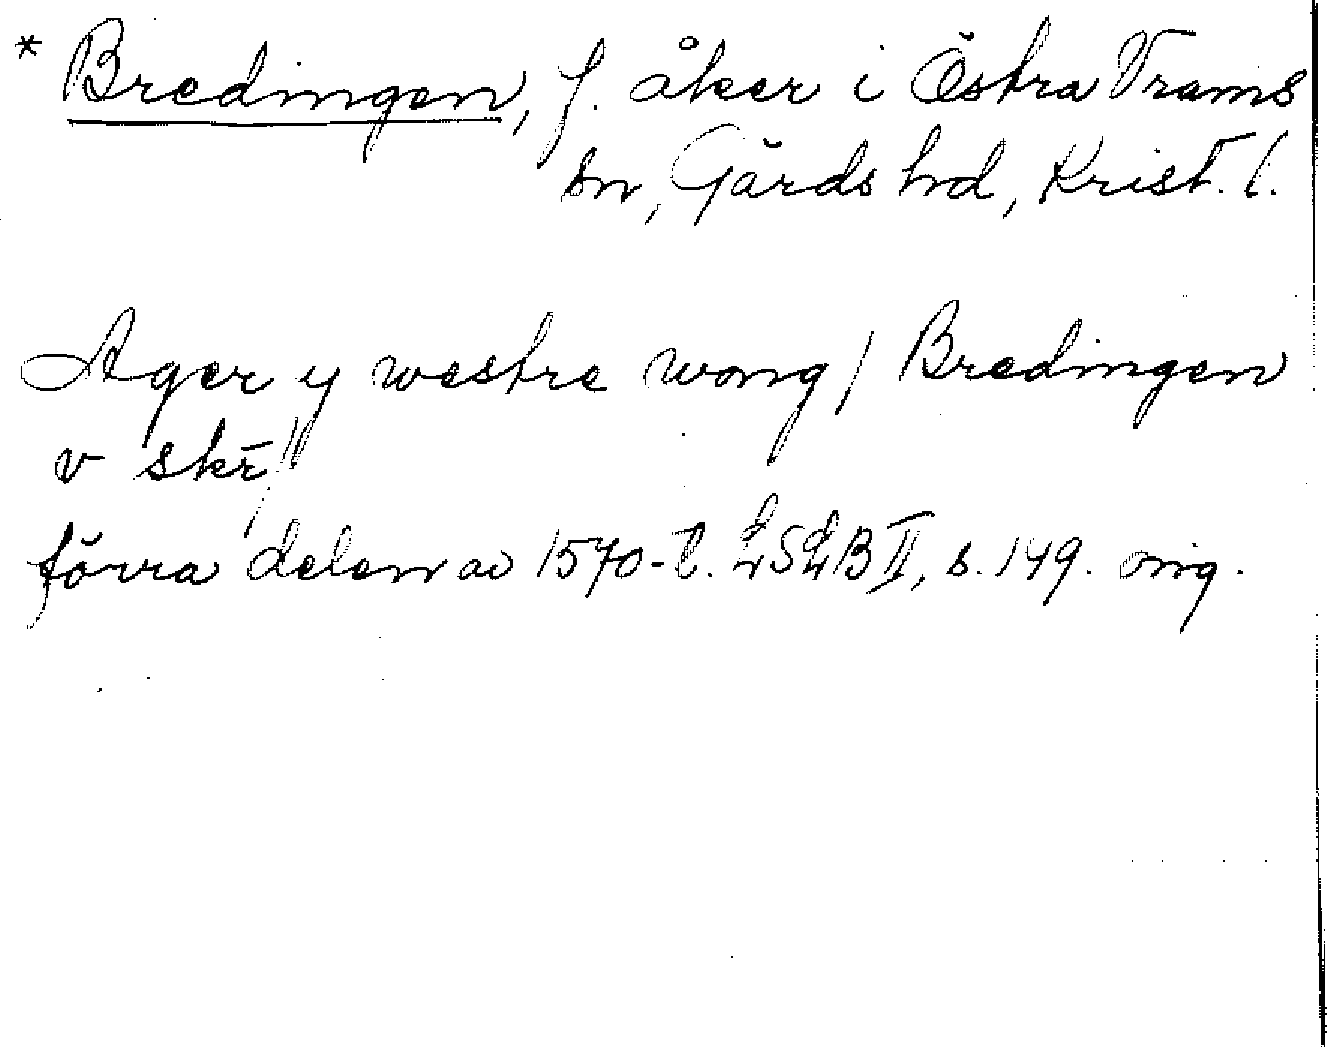 * Bredingen, f. åker i Östra Vrams
sn, Gärds hd, Krist. l.
Ager y westre wong / Bredingen
v skē //
förra delen av 1570-t. LSLB II, s. 149. orig.